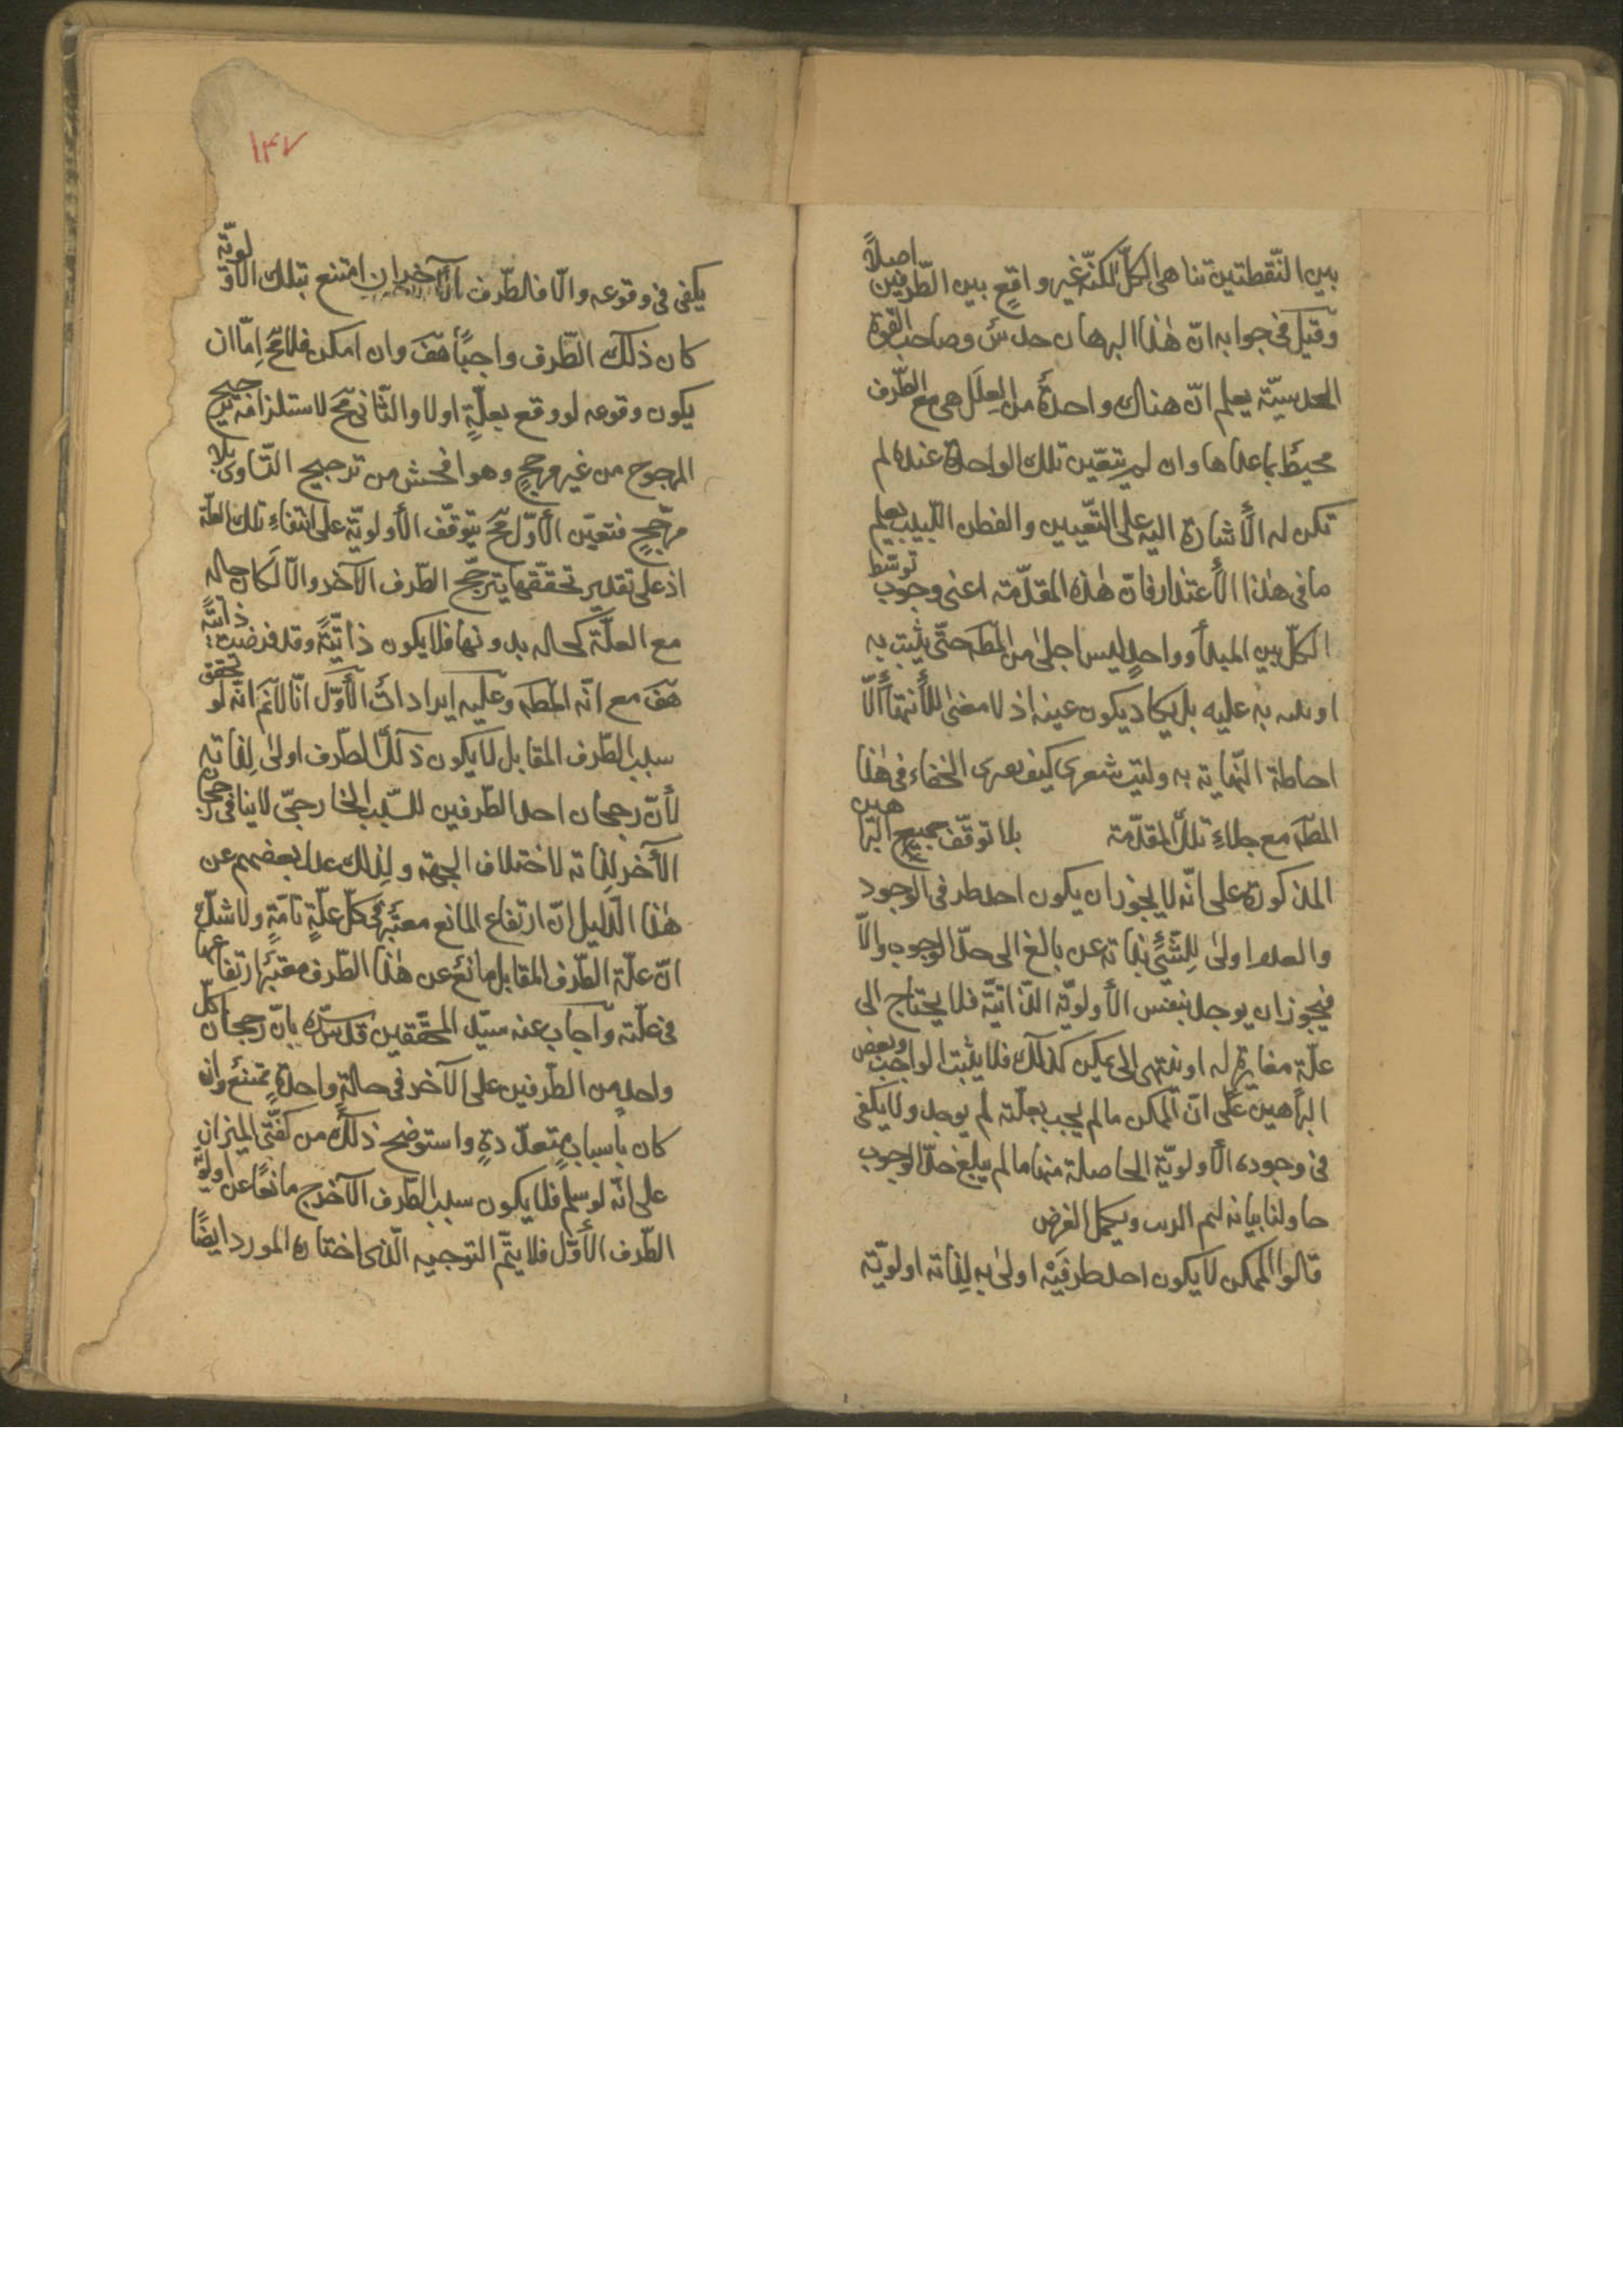 بين النّقطتين تناهى الكلّ لكنّه غير واقعٍ بين الطّرفين اصلاً
وقيل فى جوابه انّ هٰذا البرهان حدسىّ وصاحب القوّة
الحدسيّة يعلم انّ هناك واحدةً من العِلَل هى مع الطّرف
محيطةً بما عداها وان لم يتعيّن تلك الواحدة عنده لم
تكن له الأشارة اليه على التّعيين والفطن اللّبيب يعلم
ما فى هٰذا الأعتذار فانّ هٰذه المقدّمة اعنى وجوب توسّط
الكلّ بين المبدأ وواحدٍ ليس اجلىٰ من المطَ حتّى يثبت به
او به عليه بل يكاد يكون عينه اذ لا معنىٰ للأنتهاء الّا
احاطة النّهاية به وليت شعرى كيف الخفاء فى هٰذا
المطَ مع جلاءِ تلك المقدّمة بلا توقّف جميع البراهين
المذكورة على انّه لا يجوز ان يكون احد طرفى الوجود
والعدم اولىٰ لِلشّئ بذاته عن بالغ الى حدّ الوجوب والّا
فيجوز ان يوجد بنفس الأولويّة الذّاتيّة فلا يحتاج الى
علّةٍ مغايرةٍ له او ينتهى الى ممكن كذلك فلا يثبت الواجب وبعض
البراهين علىٰ انّ الممكن ما لم يجب بعلّته لم يوجد ولا يكفى
فى وجوده الأولويّة الحاصلة منها ما لم يبلغ حدّ الوجوب
حاولنا بيانه ليتم ويكمل الغرض
قالوا الممكن لا يكون احد طرفَيْه اولىٰ به لِذاته اولويّة
١٤٧
يكفى فى وقوعه والّا فالطّرف الآخر ان امتنع بتلك الأولويّة
كان ذلك الطّرف واجبًا هفَ وان امكن فلا مح امّا ان
يكون وقوعه لو وقع بعلّةٍ اولا والثّانى مح لاستلزامه ترجيح
المرجوح من غير مرجحٍ وهو افحش من ترجيح التّساوى بلا
مرجّحٍ فتعيّن الأوّل مح يتوقّف الأولويّة على انتفاءِ تلك العلّة
اذ على تقدير تحقّقها يترجّح الطّرف الآخر والّا لَكان حاله
مع العلّة كحاله بدونها فلا يكون ذاتيّةً وقد فرضت ذاتيّةً
هفَ مع انّه المطَ وعليه ايراداتٌ الأوّل انّا لا نَم انّه لو تحقق
سبب الطّرف المقابل لا يكون ذلك الطّرف اولىٰ لِذاته
لأنّ رجحان احد الطّرفين للسّبب الخارجىّ لا ينافى رجحان
الأخر لِذاته لاختلاف الجهة ولذلك عدل بعضهم عن
هٰذا الدّليل انّ ارتفاع المانع معتبَرٌ فى كلّ علّةٍ تامّةٍ ولا شكّ
انّ علّة الطّرف المقابل مانعٌ عن هٰذا الطّرف معتبَرًا ارتفاعها
فى علّته واجاب عنه سيّد المحقّقين قدّس سرّه بانّ رجحان كلّ
واحدٍ من الطّرفين على الآخر فى حالةٍ واحدةٍ ممتنعٌ وان
كان باسبابٍ متعدّدةٍ واستوضح ذلك من كفّتَى الميزان
على انّه لو سلم فلا يكون سبب الطّرف الآخر ح مانعًا عن اولويّة
الطّرف الأوّل فلا يتمّ التوجيه الّذى اختاره المورد ايضًا